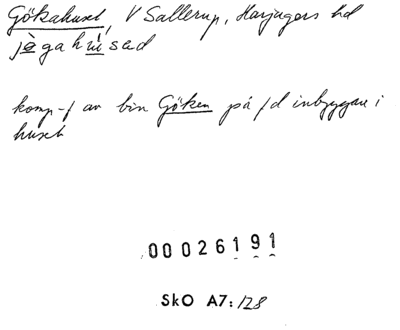 Gökahuset, V Sallerup, Harjagers hd
jè̱gahu̱̍səd
komp-f av bin Göken på f d inbyggare i
huset
00026191
SkO A7:128